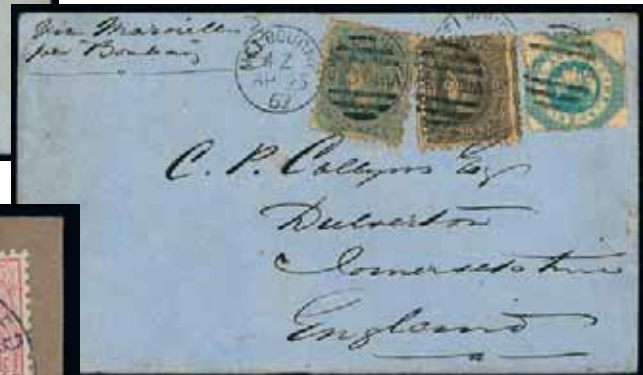 Via Marseilles
per Bombay
MELBOURNE
AP 25
C. P. Collyns Esq
Dulverton
Somersetshire
England